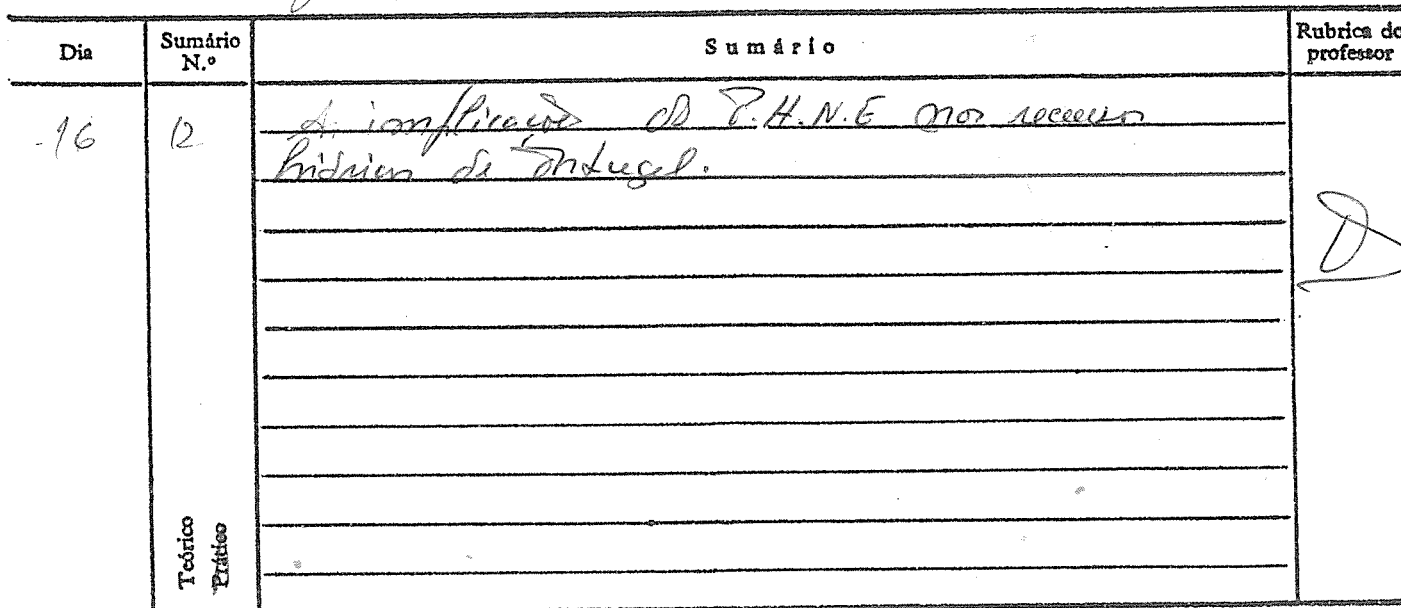 Dia
Sumário N.º
Sumário
Rubrica do professor
16
12
As implicações do P.H.N.E nos recursos
hídricos de Portugal.
Teórico
Prático